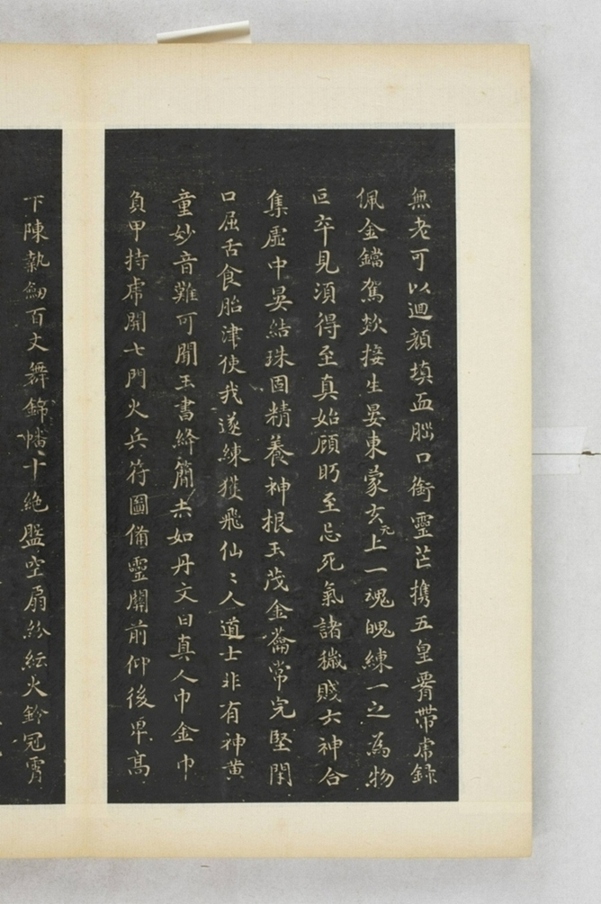 無老可以迴顏填血腦口銜靈芒攜五皇腰帶虎籙
佩金鐺駕欻接生晏東蒙玄元上一魂魄練一之為物
叵卒見須得至真始顧眄至忌死氣諸穢賤六神合
集虛中晏結珠固精養神根玉茂金籥常完堅閉
口屈舌食胎津使我遂練獲飛仙〻人道士非有神黃
童妙音難可聞玉書絳簡赤如丹文曰真人巾金巾
負甲持虎開七門火兵符圖備靈關前仰後卑高
下陳執劒百丈舞錦幡十絕盤空扇紛紜火鈴冠霄